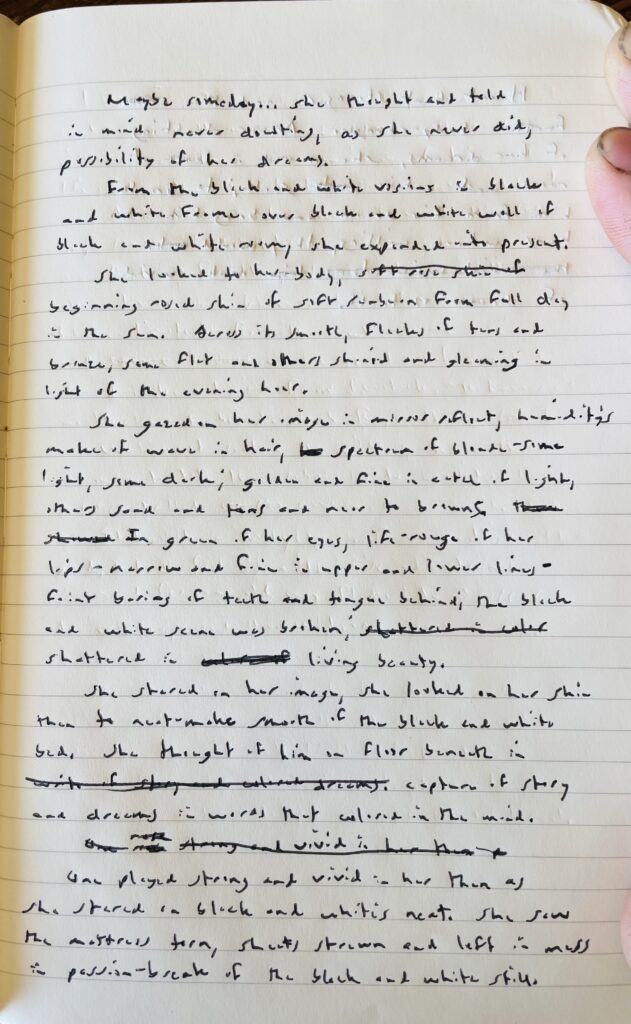 Maybe someday... she thought and told
in mind never doubting, as she never did,
possibility of her dreams.
From the black and white visions in black
and white frame over black and white wall of
black and white room, she expanded into present.
She looked to her body, soft rose skin of
beginning rosed skin of soft sunburn from full day
in the sun. Across its smooth, flecks of tans and
bronze, some flat and others shined and gleaming in
light of the evening hour.
She gazed on her image in mirror reflect, humidity's
make of wave in hair, spectrum of blonde - some
light, some dark; golden and fine in catch of light,
others sand and tans and near to browns.
In green of her eyes, life-rouge of her
lips - narrow and fine in upper and lower lines -
faint baring of teeth and tongue behind; the black
and white scene was broken; shattered in color
shattered in living beauty.
She stared on her image, she looked on her skin
then to neat-make smooth of the black and white
bed. She thought of him on floor beneath in
write of story and colored dreams. capture of story
and dreams in words that colored in the mind.
One strong and vivid in her then
One played strong and vivid in her then as
she stared on black and white's neat. She saw
the mattress torn, sheets strewn and left in mess
in passion-break of the black and white still.